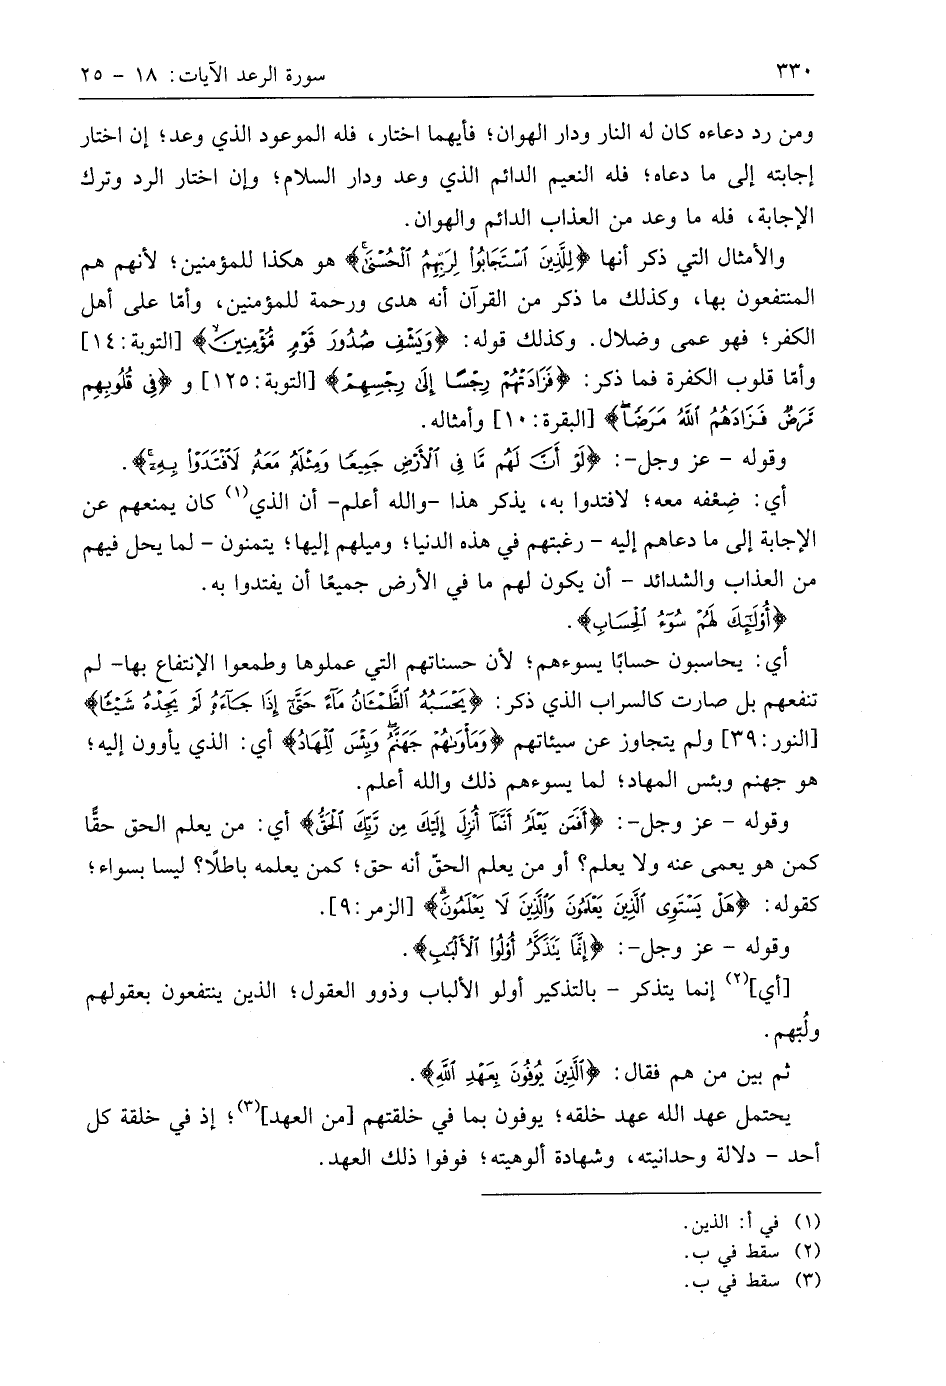 ٣٣٠
سورة الرعد الآيات: ١٨ - ٢٥
ومن رد دعاءه كان له النار ودار الهوان؛ فأيهما اختار، فله الموعود الذي وعد؛ إن اختار
إجابته إلى ما دعاه؛ فله النعيم الدائم الذي وعد ودار السلام؛ وإن اختار الرد وترك
الإجابة، فله ما وعد من العذاب الدائم والهوان.
والأمثال التي ذكر أنها ﴿لِلَّذِينَ ٱسْتَجَابُوا۟ لِرَبِّهِمُ ٱلْحُسْنَىٰ﴾ هو هكذا للمؤمنين؛ لأنهم هم
المنتفعون بها، وكذلك ما ذكر من القرآن أنه هدى ورحمة للمؤمنين، وأمّا على أهل
الكفر؛ فهو عمى وضلال. وكذلك قوله: ﴿وَيَشْفِ صُدُورَ قَوْمٍ مُّؤْمِنِينَ﴾ [التوبة:١٤]
وأمّا قلوب الكفرة فما ذكر: ﴿فَزَادَتْهُمْ رِجْسًا إِلَىٰ رِجْسِهِمْ﴾ [التوبة:١٢٥] و ﴿فِى قُلُوبِهِم
مَّرَضٌ فَزَادَهُمُ ٱللَّهُ مَرَضًا﴾ [البقرة:١٠] وأمثاله.
وقوله - عز وجل-: ﴿لَوْ أَنَّ لَهُم مَّا فِى ٱلْأَرْضِ جَمِيعًا وَمِثْلَهُۥ مَعَهُۥ لَٱفْتَدَوْا۟ بِهِۦٓ﴾.
أي: ضِعْفه معه؛ لافتدوا به، يذكر هذا -والله أعلم- أن الذي(١) كان يمنعهم عن
الإجابة إلى ما دعاهم إليه - رغبتهم في هذه الدنيا؛ وميلهم إليها؛ يتمنون - لما يحل فيهم
من العذاب والشدائد - أن يكون لهم ما في الأرض جميعًا أن يفتدوا به.
﴿أُو۟لَٰٓئِكَ لَهُمْ سُوٓءُ ٱلْحِسَابِ﴾.
أي: يحاسبون حسابًا يسوءهم؛ لأن حسناتهم التي عملوها وطمعوا الإنتفاع بها- لم
تنفعهم بل صارت كالسراب الذي ذكر: ﴿يَحْسَبُهُ ٱلظَّمْـَٔانُ مَآءً حَتَّىٰٓ إِذَا جَآءَهُۥ لَمْ يَجِدْهُ شَيْـًٔا﴾
[النور:٣٩] ولم يتجاوز عن سيئاتهم ﴿وَمَأْوَىٰهُمْ جَهَنَّمُ وَبِئْسَ ٱلْمِهَادُ﴾ أي: الذي يأوون إليه؛
هو جهنم وبئس المهاد؛ لما يسوءهم ذلك والله أعلم.
وقوله - عز وجل-: ﴿أَفَمَن يَعْلَمُ أَنَّمَآ أُنزِلَ إِلَيْكَ مِن رَّبِّكَ ٱلْحَقُّ﴾ أي: من يعلم الحق حقًّا
كمن هو يعمى عنه ولا يعلم؟ أو من يعلم الحقّ أنه حق؛ كمن يعلمه باطلًا؟ ليسا بسواء؛
كقوله: ﴿هَلْ يَسْتَوِى ٱلَّذِينَ يَعْلَمُونَ وَٱلَّذِينَ لَا يَعْلَمُونَ﴾ [الزمر:٩].
وقوله - عز وجل-: ﴿إِنَّمَا يَتَذَكَّرُ أُو۟لُوا۟ ٱلْأَلْبَٰبِ﴾.
[أي](٢) إنما يتذكر - بالتذكير أولو الألباب وذوو العقول؛ الذين ينتفعون بعقولهم
ولُبّهم.
ثم بين من هم فقال: ﴿ٱلَّذِينَ يُوفُونَ بِعَهْدِ ٱللَّهِ﴾.
يحتمل عهد الله عهد خلقه؛ يوفون بما في خلقتهم [من العهد](٣)؛ إذ في خلقة كل
أحد - دلالة وحدانيته، وشهادة ألوهيته؛ فوفوا ذلك العهد.
(١) في أ: الذين.
(٢) سقط في ب.
(٣) سقط في ب.